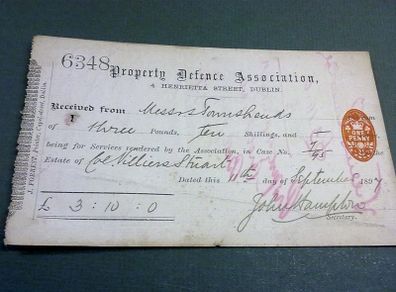 6348 Property Defence Association,
4 HENRIETTA STREET, DUBLIN.
Received from Messrs Townshends
of three Pounds, Ten Shillings, and
being for Services rendered by the Association, in Case No.
Estate of Col Villiers Stuart
Dated this 11th day of September 1897
£ 3:10:0
John Hampton
Secretary.
ONE PENNY